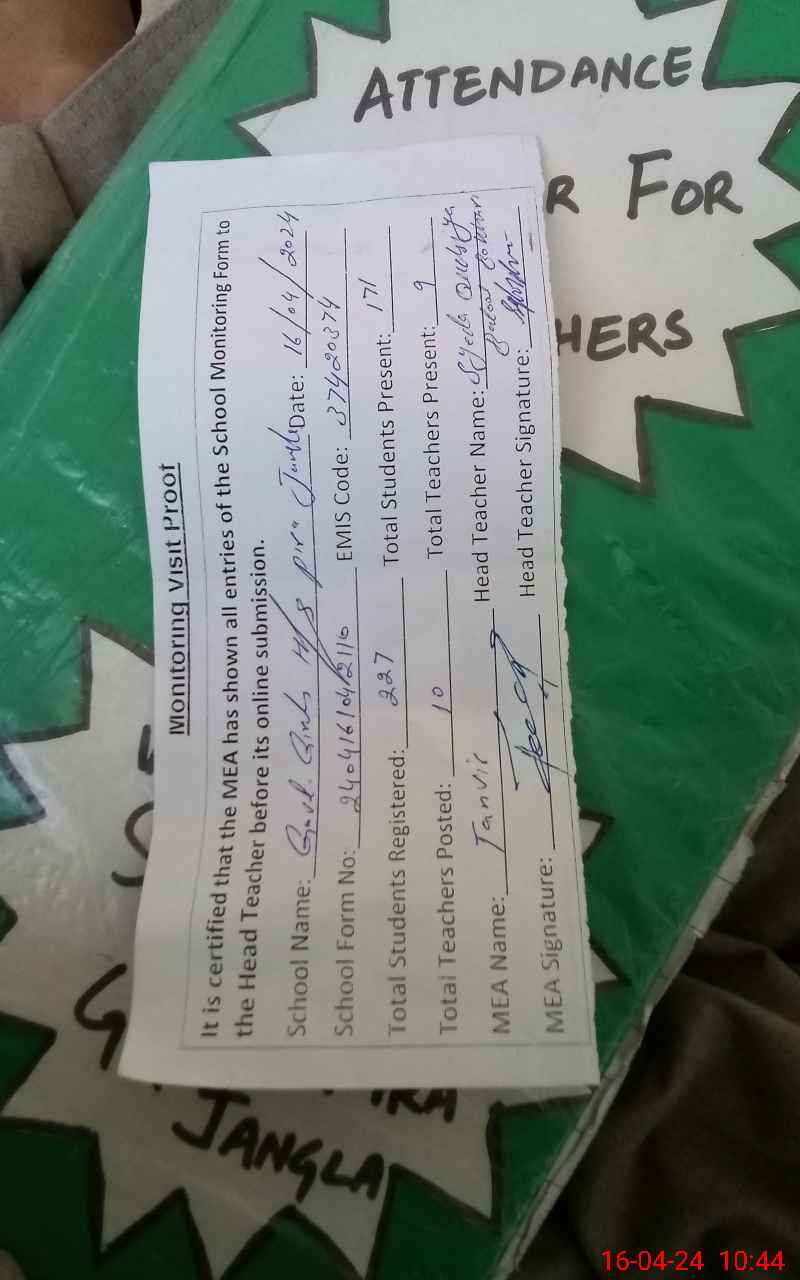 ATTENDANCE
R FOR
HERS
Monitoring Visit Proof
It is certified that the MEA has shown all entries of the School Monitoring Form to
the Head Teacher before its online submission.
School Name: Govt. Girls H/S Pira Jangla Date: 16/04/2024
School Form No: EMIS Code: 37420374
Total Students Registered: 227 Total Students Present: 171
Total Teachers Posted: 10 Total Teachers Present: 9
MEA Name: Tanvir Head Teacher Name: Syeda
MEA Signature: Head Teacher Signature:
JANGLA
16-04-24 10:44